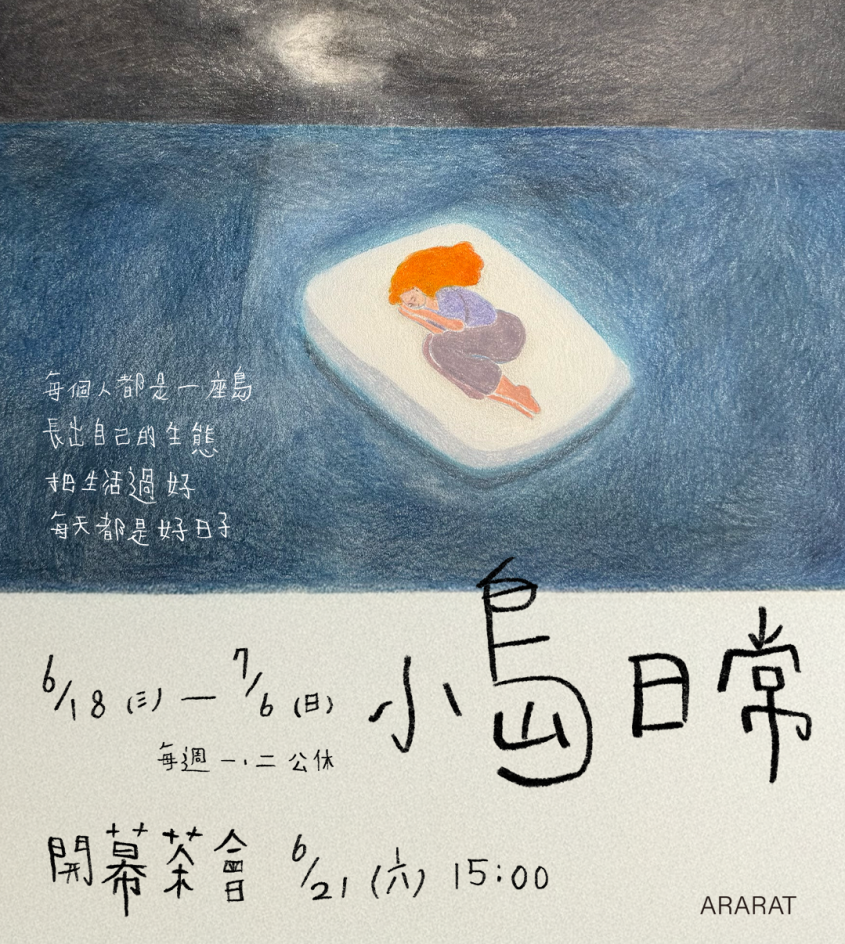 每個人都是一座島
長出自己的生態
把生活過好
每天都是好日子
小島日常
6/18 (三) — 7/6 (日)
每週一、二公休
開幕茶會 6/21 (六) 15:00
ARARAT